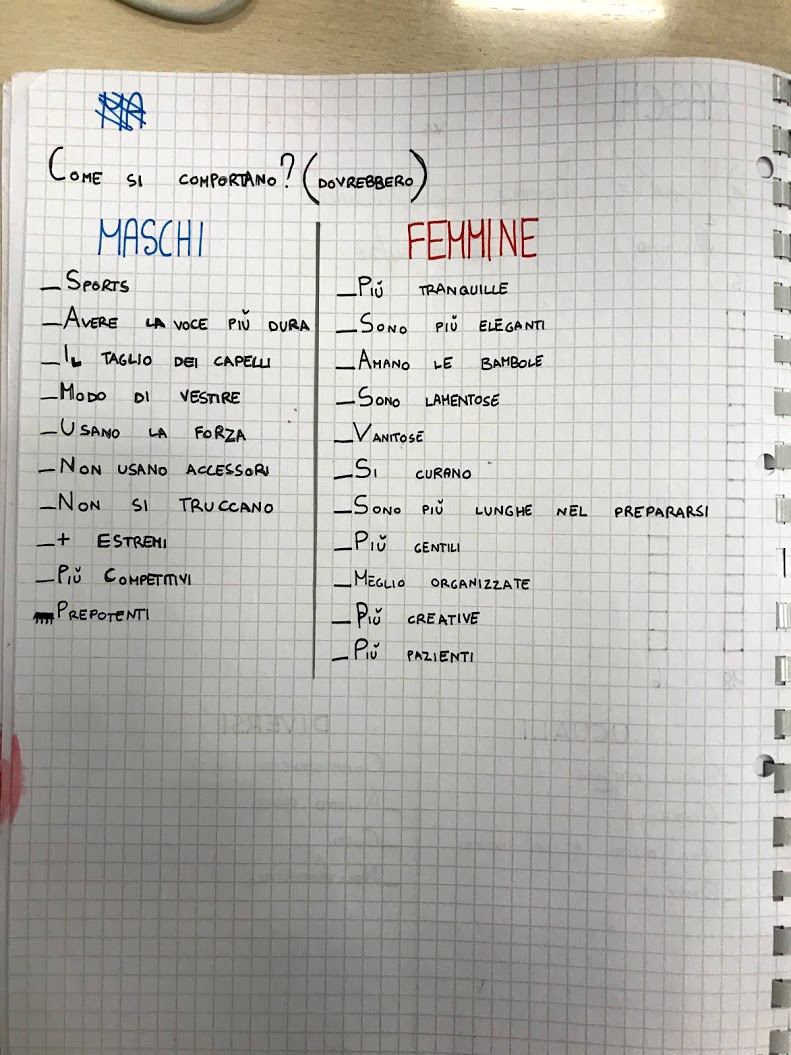 MA
COME SI COMPORTANO? (DOVREBBERO)
MASCHI
_ SPORTS
_ AVERE LA VOCE PIŬ DURA
_ IL TAGLIO DEI CAPELLI
_ MODO DI VESTIRE
_ USANO LA FORZA
_ NON USANO ACCESSORI
_ NON SI TRUCCANO
_ + ESTREMI
_ PIŬ COMPETITIVI
_ PREPOTENTI
FEMMINE
_ PIŬ TRANQUILLE
_ SONO PIŬ ELEGANTI
_ AMANO LE BAMBOLE
_ SONO LAMENTOSE
_ VANITOSE
_ SI CURANO
_ SONO PIŬ LUNGHE NEL PREPARARSI
_ PIŬ GENTILI
_ MEGLIO ORGANIZZATE
_ PIŬ CREATIVE
_ PIŬ PAZIENTI
DIVERSI
UGUALI